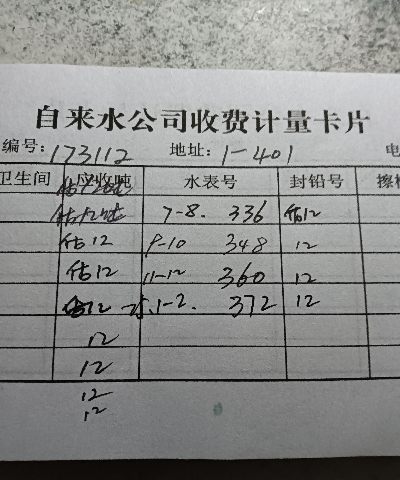 自来水公司收费计量卡片
编号: 173112 地址: 1-401 电
卫生间 应收吨 水表号 封铅号 擦
估12吨 7-8. 336 估12
估12 9-10 348 12
估12 11-12 360 12
估12 1-2. 372 12
12
12
12
12